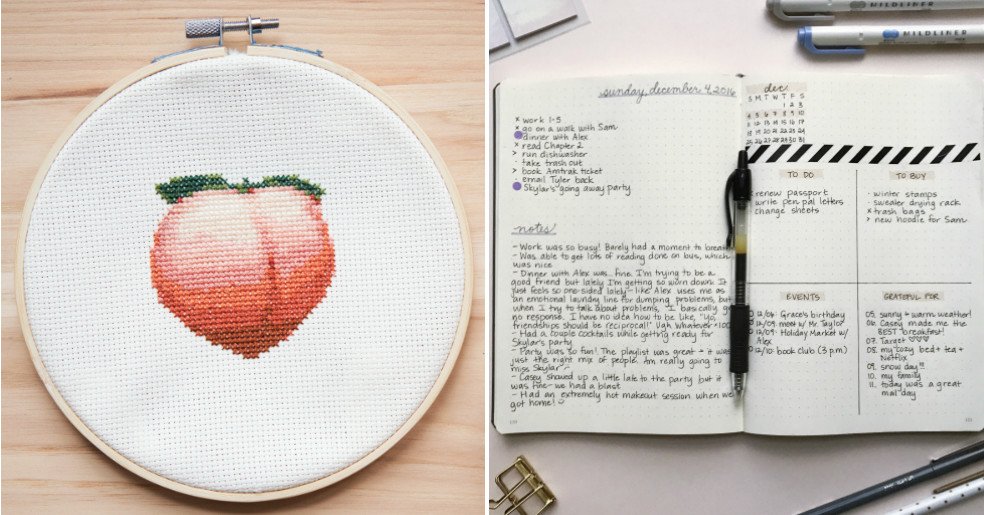 MILDLINER
MILDLINER
sunday, december 4, 2016
x work 1-5
x go on a walk with Sam
dinner with Alex
x read Chapter 2
> run dishwasher
· take trash out
> book Amtrak ticket
· email Tyler back
Skylar's going away party
notes
- Work was so busy! Barely had a moment to breathe
- Was able to get lots of reading done on bus, which
was nice
- Dinner with Alex was... fine. I'm trying to be a
good friend but lately I'm getting so worn down. It
just feels so one-sided lately - like Alex uses me as
an emotional laundry line for dumping problems, but
when I try to talk about problems, I basically get
no response. I have no idea how to be like, "yo,
friendships should be reciprocal!" Ugh whatever
- Had a couple cocktails while getting ready for
Skylar's party
- Party was so fun! The playlist was great + it was
just the right mix of people. Am really going to
miss Skylar
- Casey showed up a little late to the party but it
was fine - we had a blast
- Had an extremely hot makeout session when we
got home!
dec.
S M T W T F S
1 2 3
4 5 6 7 8 9 10
11 12 13 14 15 16 17
18 19 20 21 22 23 24
25 26 27 28 29 30 31
TO DO
x renew passport
write pen pal letters
change sheets
TO BUY
· winter stamps
· sweater drying rack
x trash bags
> new hoodie for Sam
EVENTS
12/04: Grace's birthday
12/09: meet w/ Mr. Taylor
12/09: Holiday Market w/
Alex
12/10: book club (3 p.m)
GRATEFUL FOR
05. sunny + warm weather!
06. Casey made me the
BEST breakfast!
07. Target ♡♡♡
08. my cozy bed + tea +
Netflix
09. snow day!!
10. my family
11. today was a great
mail day